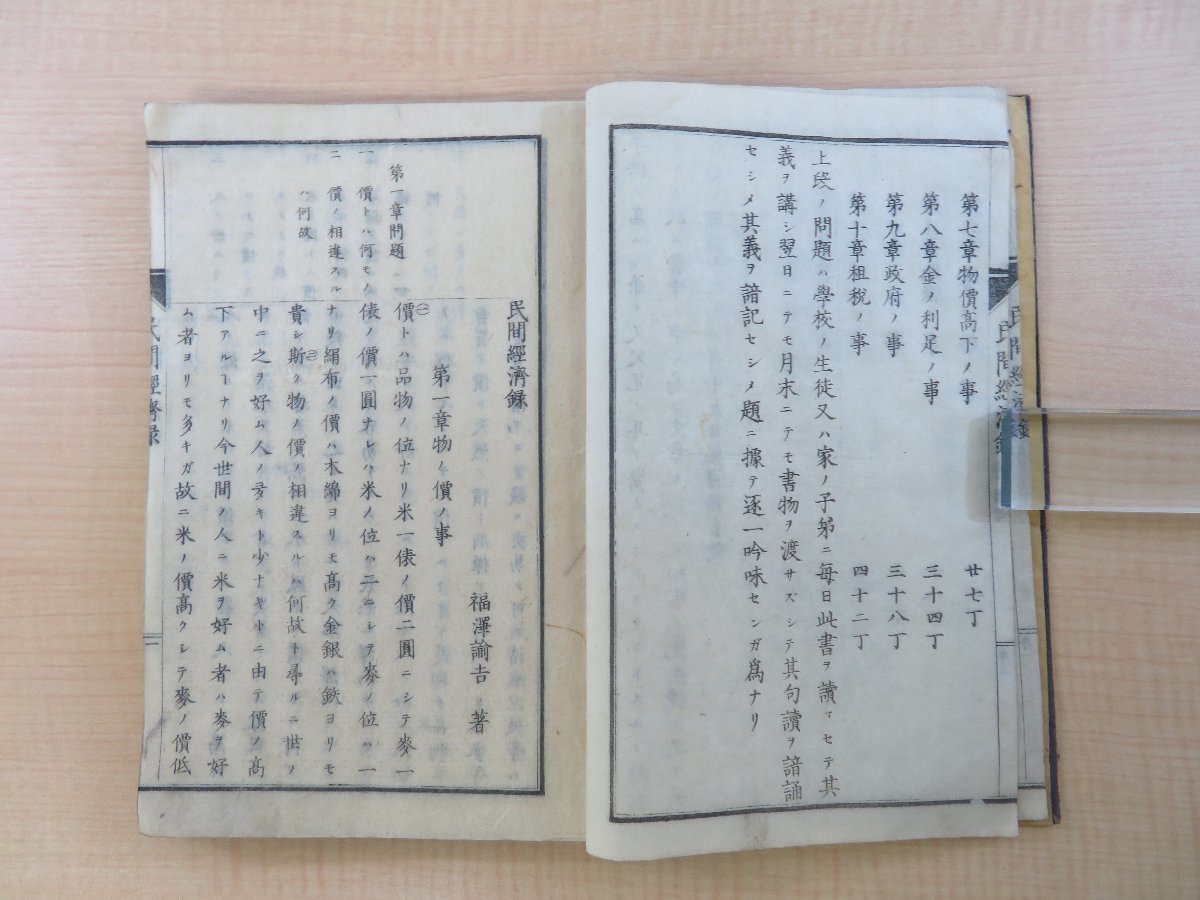 第七章物價高下ノ事 廿七丁
第八章金ノ利足ノ事 三十四丁
第九章政府ノ事 三十八丁
第十章租税ノ事 四十二丁
上段ノ問題ハ學校ノ生徒又ハ家ノ子弟ニ毎日此書ヲ讀マセテ其
義ヲ講シ翌日ニテモ月末ニテモ書物ヲ渡サズシテ其句讀ヲ諳誦
セシメ其義ヲ諳記セシメ題ニ據テ逐一吟味センガ爲ナリ
民間經濟録
民間經濟録
福澤諭吉 著
第一章物ノ價ノ事
第一章問題
一 價トハ何モノ
二 價ノ相違スル
ハ何故
㊀價トハ品物ノ位ナリ米一俵ノ價二圓ニシテ麥一
俵ノ價一圓ナレハ米ノ位ハ二ニシテ麥ノ位ハ一
ナリ絹布ノ價ハ木綿ヨリモ高ク金銀ハ鉄ヨリモ
貴シ㊁斯ク物ノ價ノ相違スルハ何故ト尋ルニ世ノ
中ニ之ヲ好ム人ノ多キト少ナキトニ由テ價ノ高
下アルヿナリ今世間ノ人ニ米ヲ好ム者ハ麥ヲ好
ム者ヨリモ多キガ故ニ米ノ價高クシテ麥ノ價低
民間經濟録